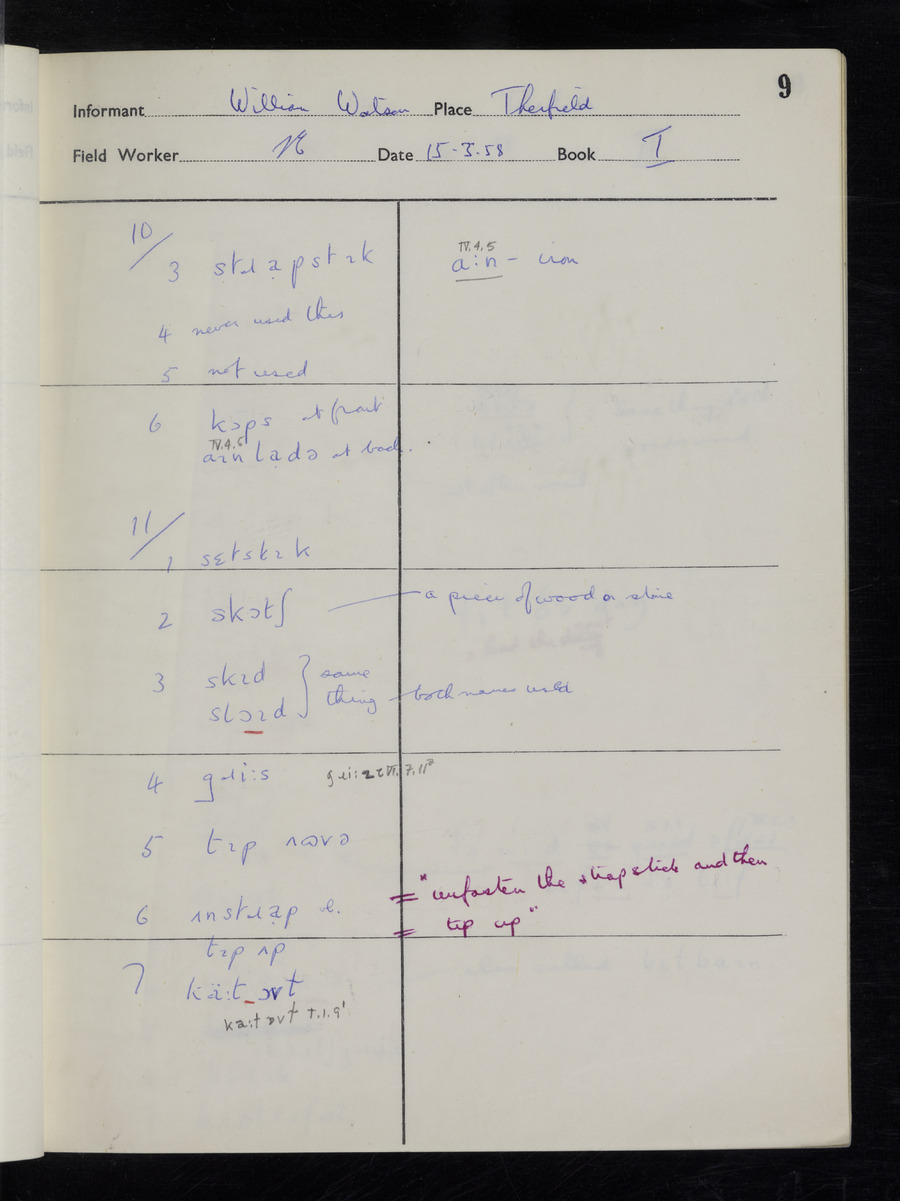 9
Informant William Watson Place Therfield
Field Worker Date 15-3-58 Book I
10/
3 stɹapstɪk
IV.4.5
a:n – iron
4 never used this
5 not used
6 kɔps at front
IV.4.5
aɪn ladə at back.
11/
1 sɛtstɪk
2 skɔtʃ a piece of wood or stone
3 skɪd } same
slɔɪd } thing both names used
4 gɹi:s gɹi: VI.7.11
5 tɪp ʌʊvə
6 ʌnstɹap &. = "unfasten the strapstick and then
tɪp ʌp = tip up"
7 kä:t ɔʊt
ka:t ɒʊt I.1.9